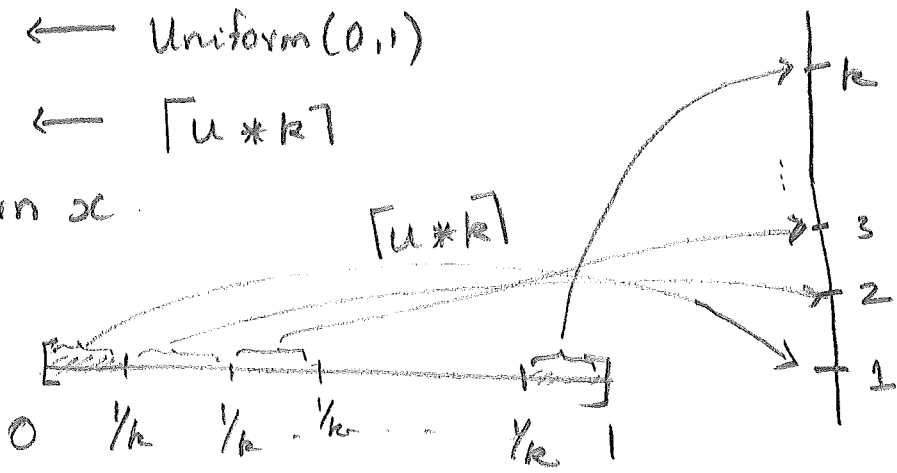 ← Uniform(0,1)
← ⌈u * k⌉
n x.
⌈u * k⌉
k
⋮
3
2
1
0 1/k 1/k . 1/k . . . 1/k 1